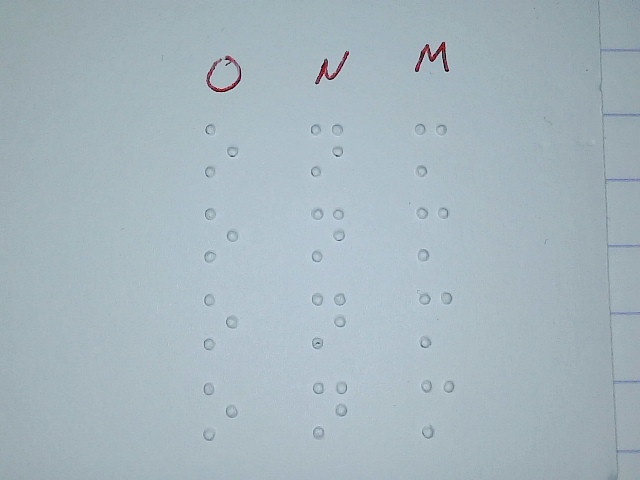 O N M
⠕ ⠝ ⠍
⠕ ⠝ ⠍
⠕ ⠝ ⠍
⠕ ⠝ ⠍